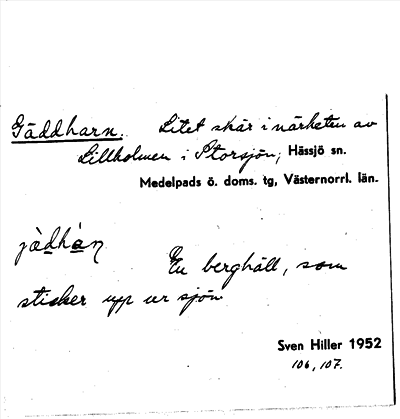 Gäddharn. Litet skär i närheten av
Lillholmen i Storsjön, Hässjö sn.
Medelpads ö. doms. tg, Västernorrl. län.
jàdhàn̥
En berghäll, som
sticker upp ur sjön
Sven Hiller 1952
106, 107.